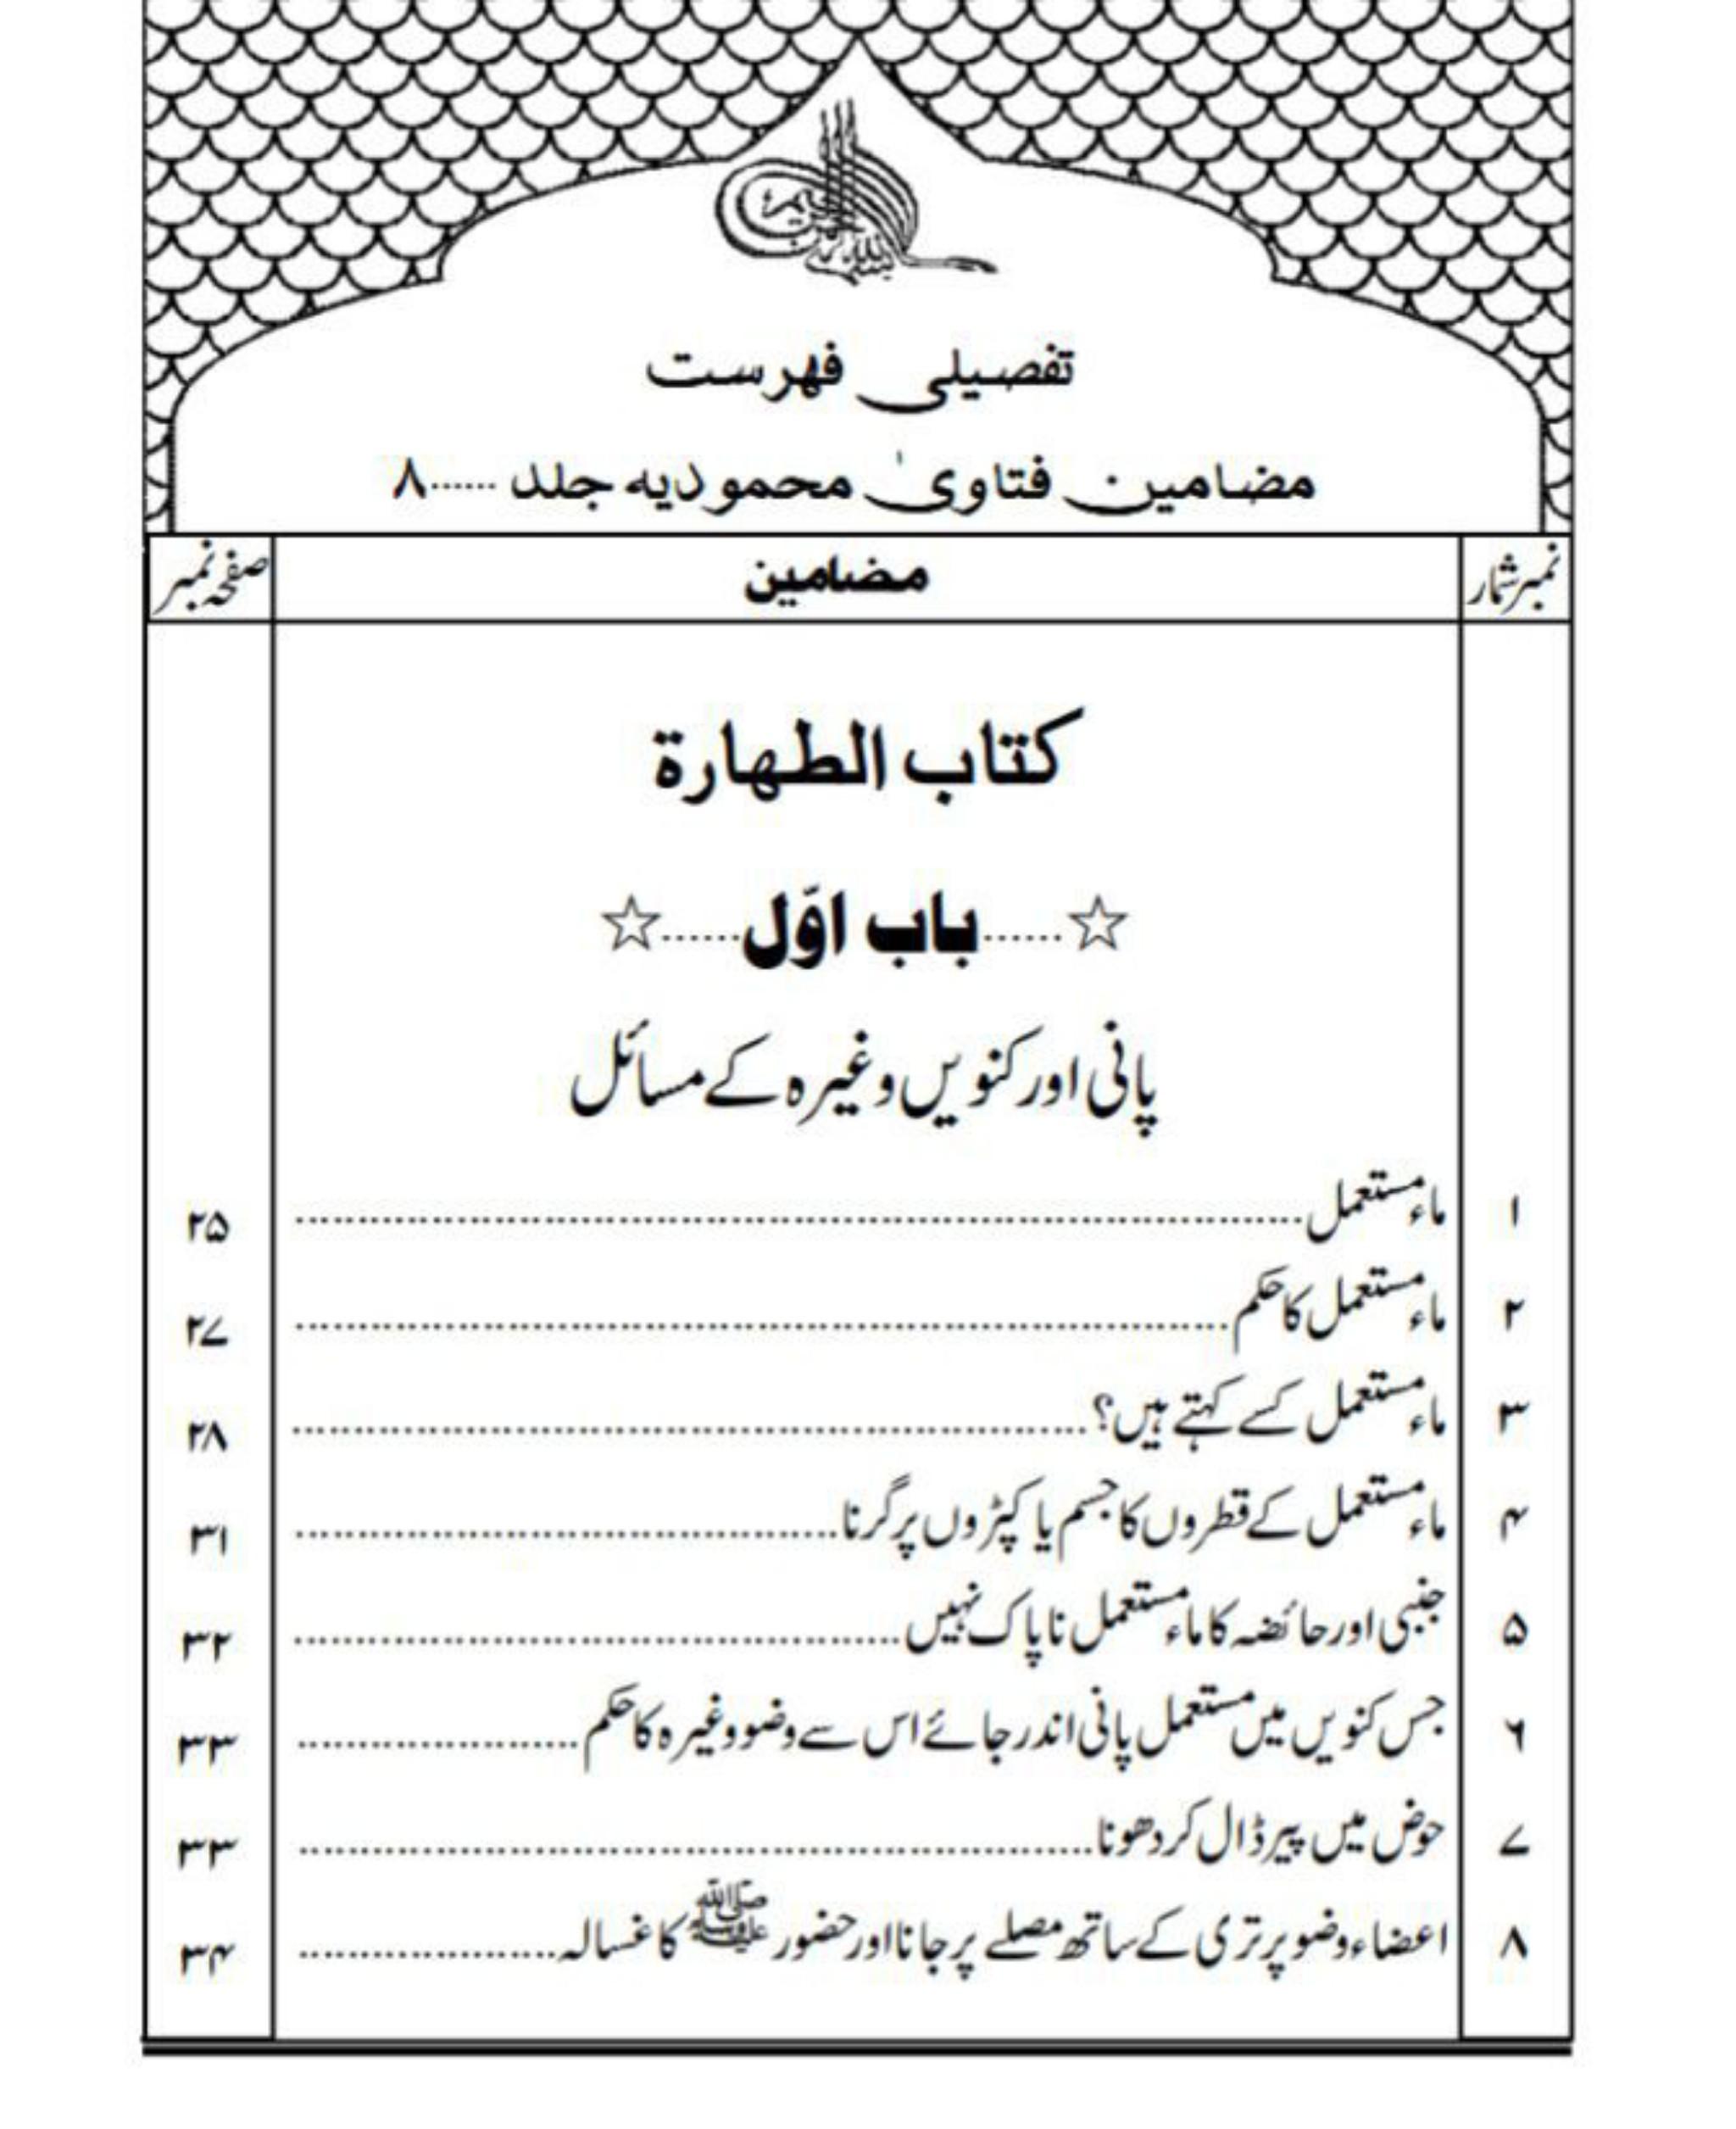 تفصیلی فہرست
مضامین فتاویٰ محمودیہ جلد ......۸
نمبر شمار مضامین صفحہ نمبر
کتاب الطہارۃ
☆......باب اوّل......☆
پانی اور کنویں وغیرہ کے مسائل
۱ ماء مستعمل ۲۵
۲ ماء مستعمل کا حکم ۲۷
۳ ماء مستعمل کسے کہتے ہیں؟ ۲۸
۴ ماء مستعمل کے قطروں کا جسم یا کپڑوں پر گرنا ۳۱
۵ جنبی اور حائضہ کا ماء مستعمل ناپاک نہیں ۳۲
۶ جس کنویں میں مستعمل پانی اندر جائے اس سے وضو وغیرہ کا حکم ۳۳
۷ حوض میں پیر ڈال کر دھونا ۳۳
۸ اعضاء وضو پر تری کے ساتھ مصلے پر جانا اور حضور ﷺ کا غسالہ ۳۴